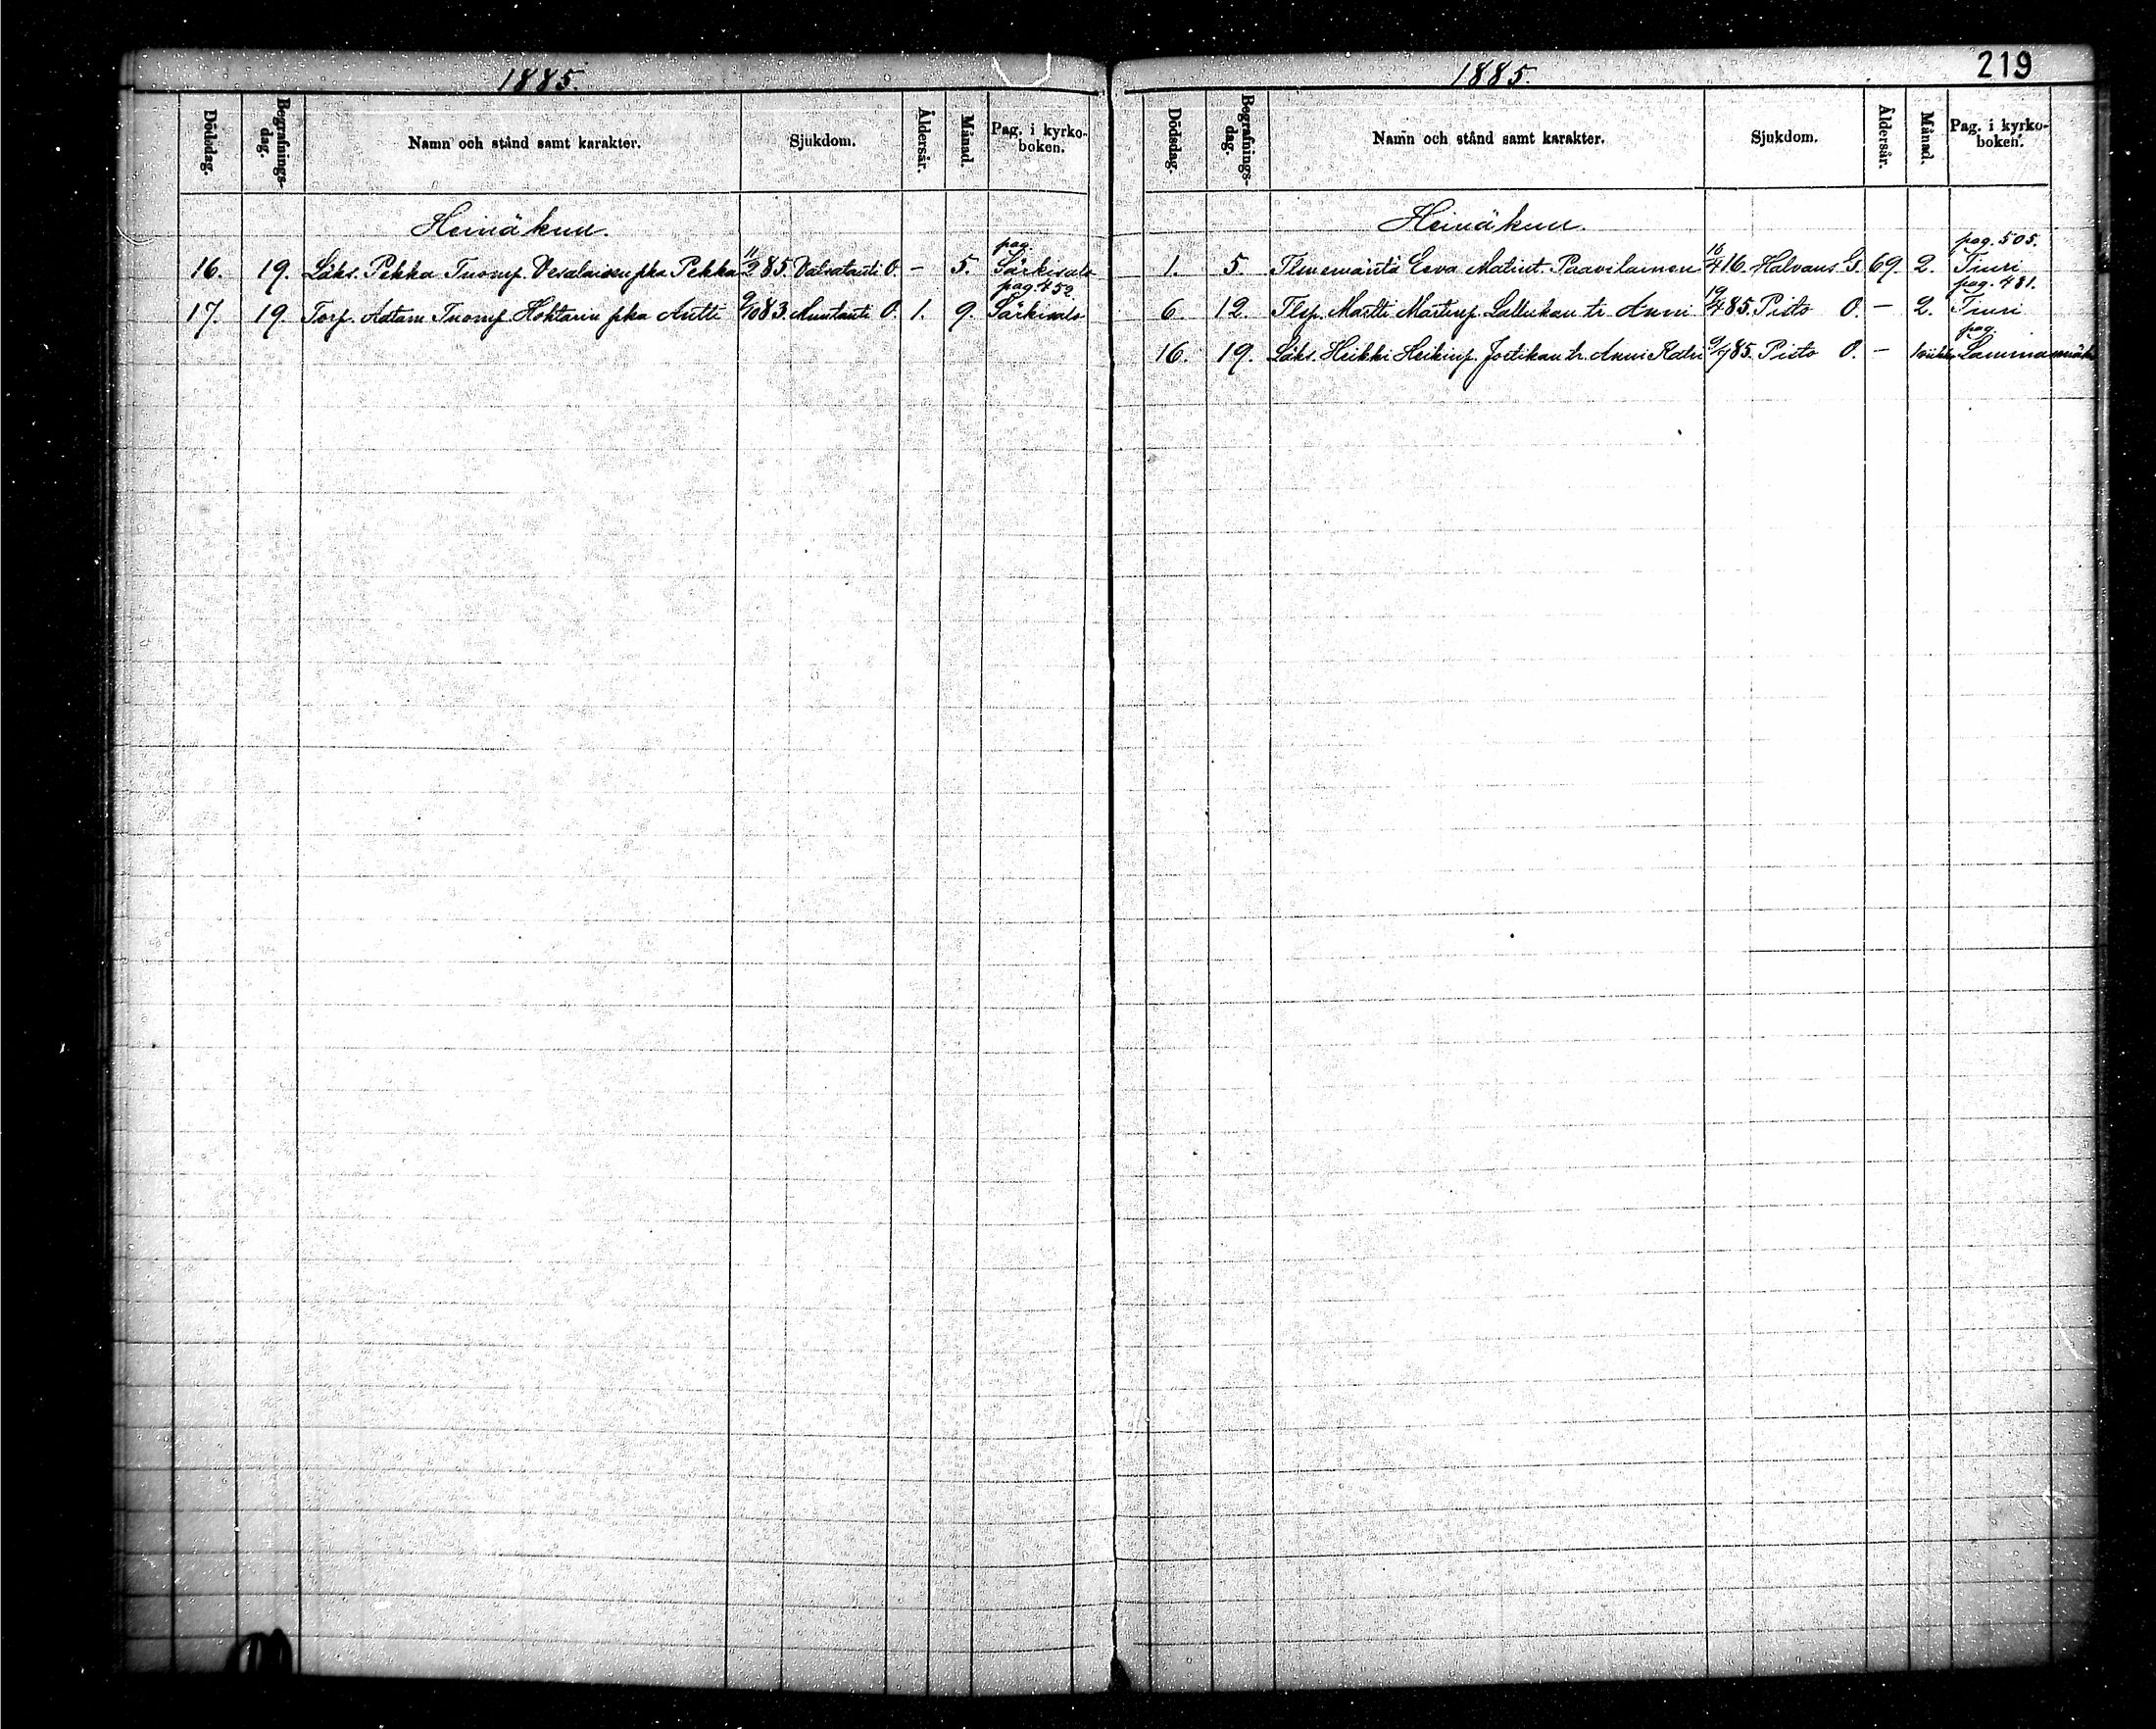 1885.
Dödsdag. Begrafnings-dag. Namn och stånd samt karakter. Sjukdom. Åldersår. Månad. Pag. i kyrko-boken.
Heinäkuu.
pag.
16. 19. Läks. Pekka Tuomp. Vesalaisen pka Pekka 11/2 85. Vatsatauti O. – 5. Särkisalo
pag. 452.
17. 19. Torp. Aatam Tuomp. Hoktarin pka Antti 9/10 83. O. 1. 9. Särkisalo
1885.
219
Dödsdag. Begrafnings-dag. Namn och stånd samt karakter. Sjukdom. Åldersår. Månad. Pag. i kyrko-boken.
Heinäkuu.
pag. 505.
1. 5. Tlinemäntä Eeva Matint. Paavilainen 16/4 16. Halvaus G. 69. 2. Tiuri
pag. 481.
6. 12. Tlsp. Martti Martinp. Lallukan tr. Anni 19/4 85. Pisto O. – 2. Tiuri
pag.
16. 19. Läks. Heikki Heikinp. Jortikan tr. Anni Katri 9/7 85. Pisto O. – 1 viikko